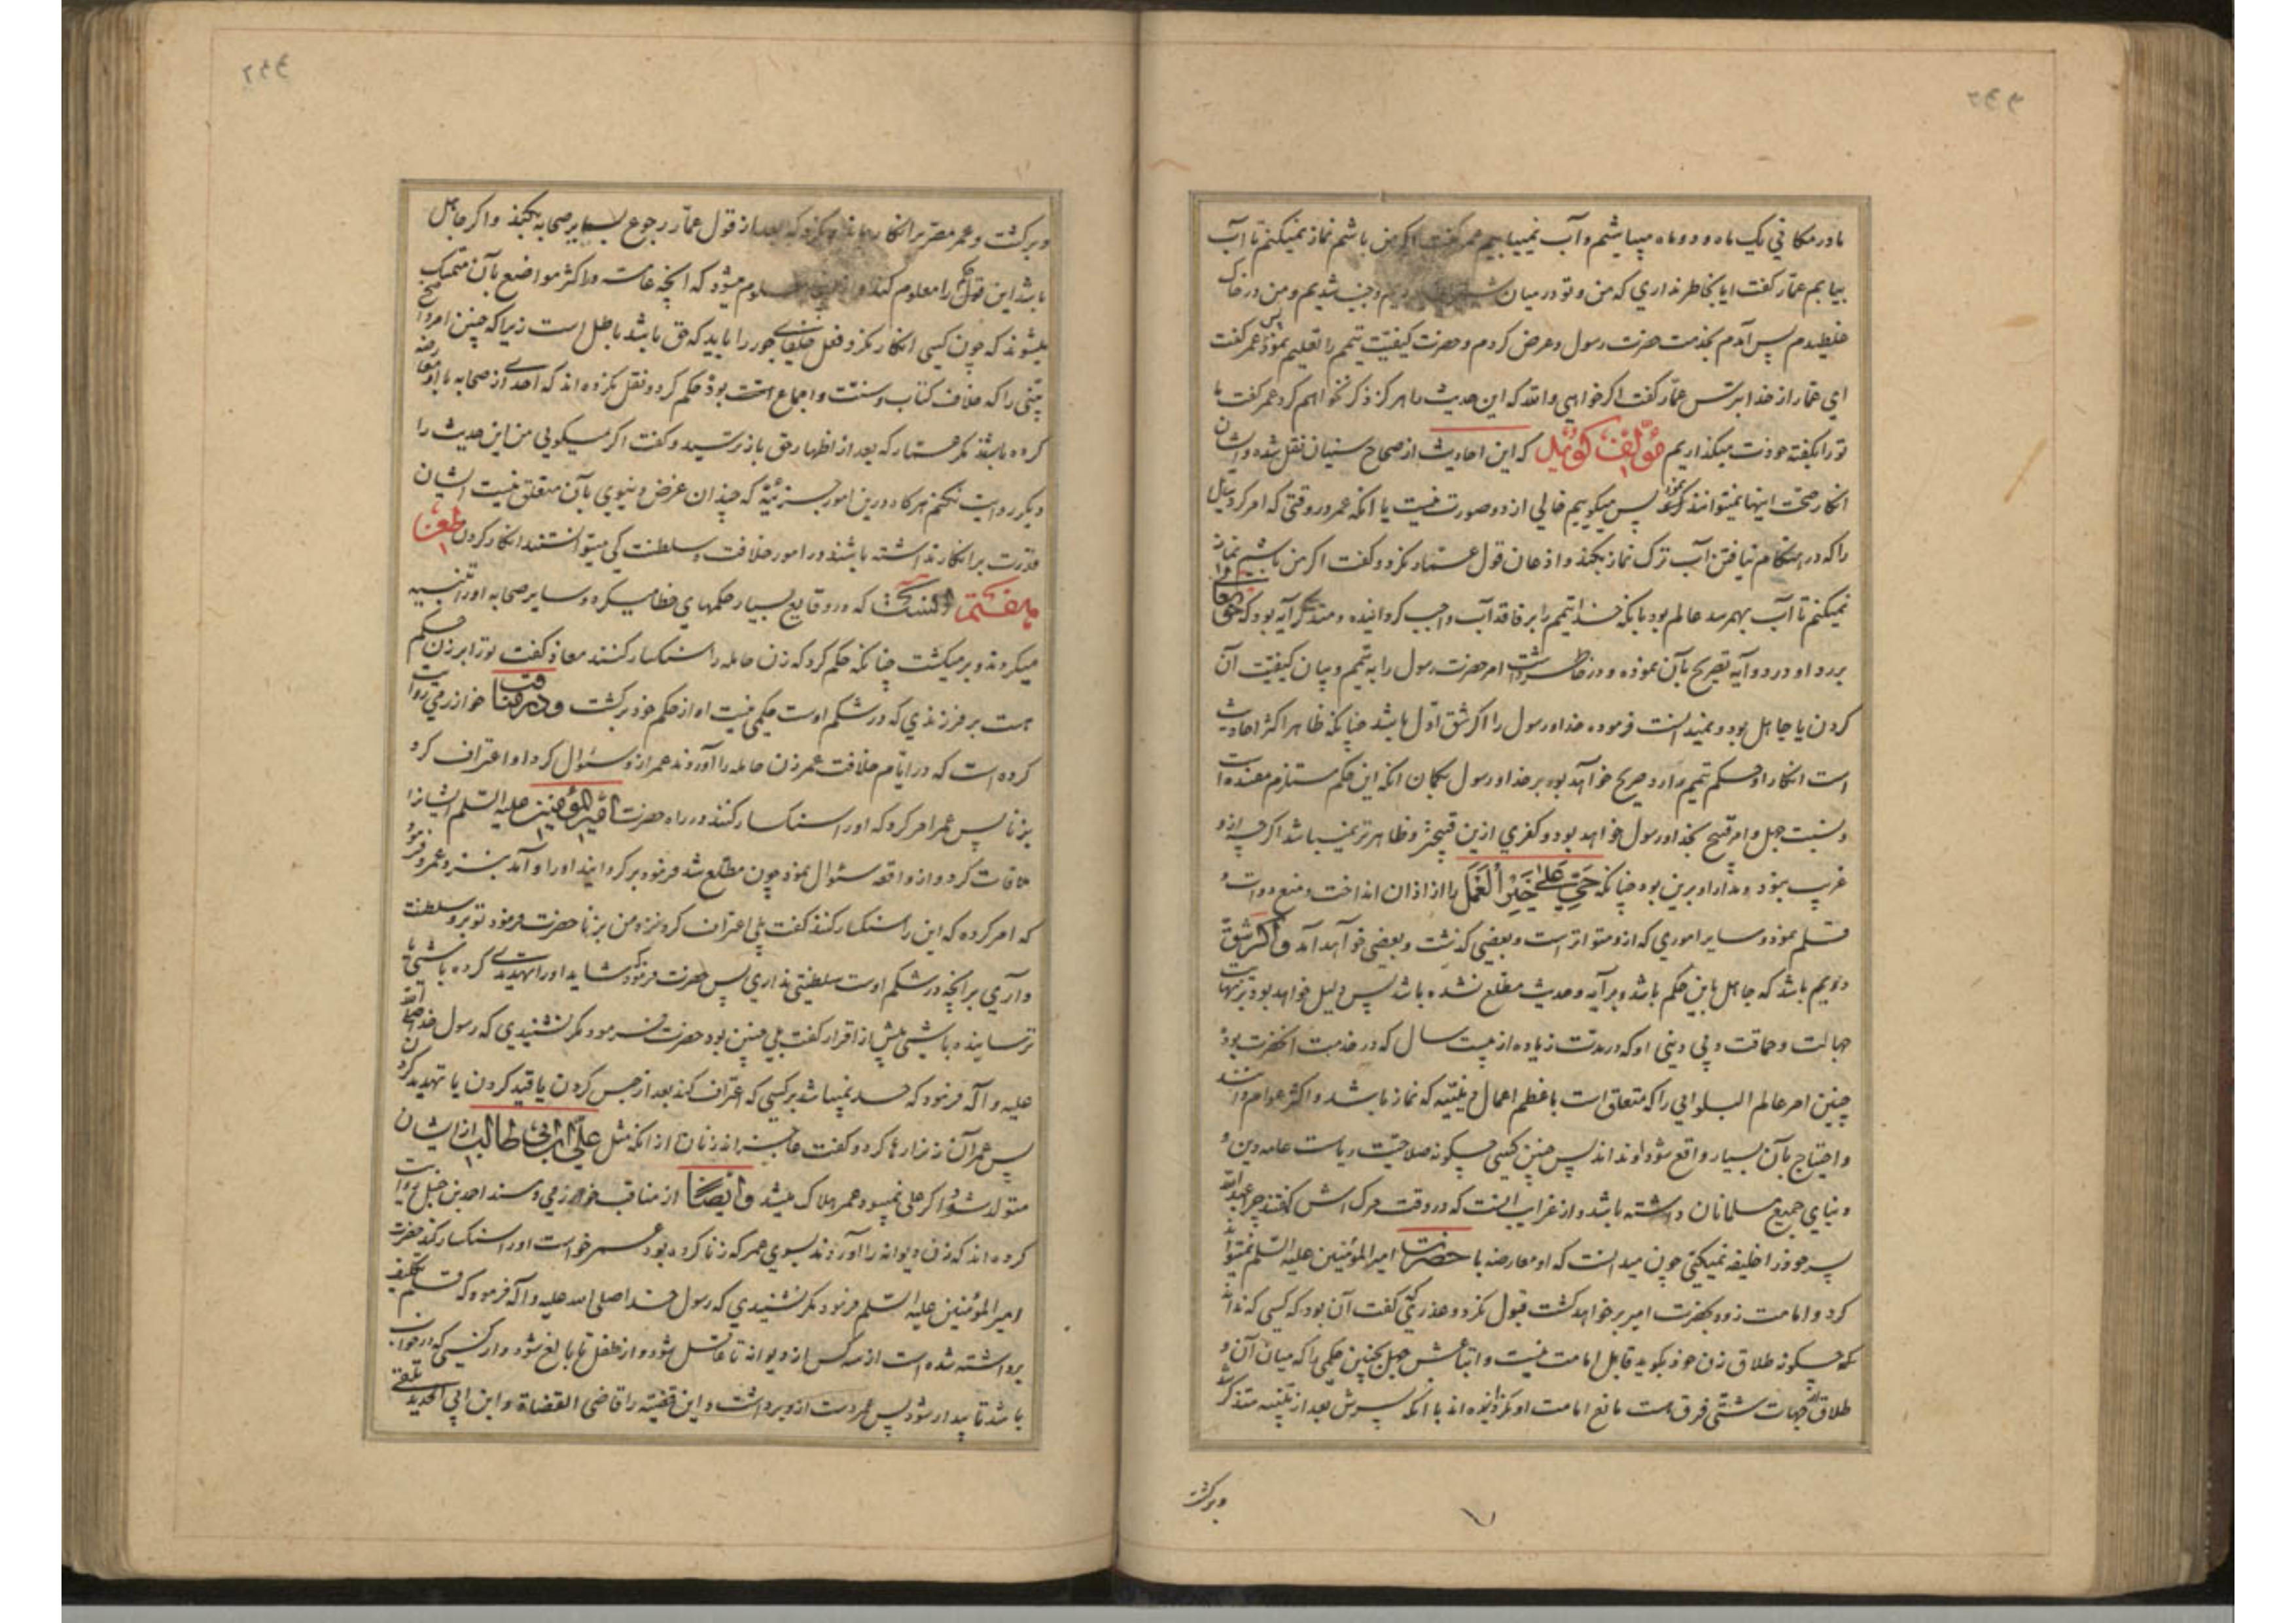 مادر مکانی یک ماه و دو ماه میباشیم و آب نمییابیم عمر گفت اگر من باشم نماز نمیکنم تا آب
بیابم عمّار گفت ایا بخاطر نداری که من و تو در میان شتران بودیم و جنب شدیم و من در خاک
غلطیدم پس آمدم بخدمت حضرت رسول و عرض کردم و حضرت کیفیّت تیمم را تعلیم نمود پس عمر گفت
ای عمّار از خدا بترس عمّار گفت اگر خواهی والله که این حدیث را هرگز ذکر نخواهم کرد عمر گفت ما
تو را بگفته خودت میگذاریم مؤلّف گوید که این احادیث از صحاح سنیان نقل شده و ایشان
انکار صحّت اینها نمیتوانند نمود پس میگوییم خالی از دو صورت نیست یا انکه عمر در وقتی که امر کرد سایل
را که در هنگام نیافتن آب ترک نماز بکند و اذعان قول عمّار نکرد و گفت اگر من باشم نماز
نمیکنم تا آب بهمرسد عالم بود بانکه خدا تیمم را بر فاقد آب واجب گردانیده و متذکر آیه بود که حق تعالی
در دو آیه تصریح بآن نموده و در خاطر داشت امر حضرت رسول را به تیمم و بیان کیفیّت آن
کردن یا جاهل بود و نمیدانست فرموده خدا و رسول را اگر شق اوّل باشد چنانکه ظاهر اکثر احادیث
است انکار او حکم تیمم را رد صریح خواهد بود بر خدا و رسول بگمان انکه این حکم مستلزم مفسده است
و نسبت جهل و امر قبیح بخدا و رسول خواهد بود و کفری ازین قبیحتر و ظاهرتر نمیباشد اگر چه از و
غریب نبود و مدار او برین بود چنانکه حَيَّ عَلیٰ خَیْرِ الْعَمَلْ را از اذان انداخت و منع دوات و
قلم نمود و سایر اموری که از و متواتر است و بعضی گذشت و بعضی خواهد آمد و اگر شق
دویم باشد که جاهل باین حکم باشد و بر آیه و حدیث مطلع نشده باشد پس دلیل خواهد بود بر نهایت
جهالت و حماقت و بی دینی او که در مدّت زیاده از بیست سال که در خدمت آنحضرت بود
چنین امر عالم البلوایی را که متعلق است باعظم اعمال دینیّه که نماز باشد و اکثر عوام دانند
و احتیاج بآن بسیار واقع شود او نداند پس چنین کسی چگونه صلاحیّت ریاست عامه دین و
دنیای جمیع مسلمانان داشته باشد و از غرایب آنست که در وقت مرک اش گفتند چرا عبدالله
پسر خود را خلیفه نمیکنی چون میدانست که او معارضه با حضرت امیرالمؤمنین علیه السّلم نمیتواند
کرد و امامت زود بحضرت امیر بر خواهد گشت قبول نکرد و عذری کفت آن بود که کسی که نداند
که چگونه طلاق زن خود بگوید قابل امامت نیست و اتباعش جهل بچنین حکمی را که میان آن و
طلاق از جهات شتّی فرق هست مانع امامت او نکردانیده اند با انکه پسرش بعد از تنبیه متذکر شد
و برگشت
و برگشت و عمر مصرّ بر انکار ماند و نکرد که بعد از قول عمّار رجوع بسایر صحابه بکند و اگر جاهل
باشد این قول را معلوم کند و از اینجا معلوم میشود که آنچه عامّه در اکثر مواضع بآن متمسک
میشوند که چون کسی انکار نکرد فعل خلفای جور را باید که حق باشد باطل است زیرا که چنین امر واضح
بیّنی را که خلاف کتاب و سنّت و اجماع امّت بود حکم کرد و نقل نکرده اند که احدی از صحابه با او معارضه
کرده باشد مگر عمّار که بعد از اظهار حق باز ترسید و گفت اگر میگویی من این حدیث را
دیگر روایت نکنم هرگاه درین امور جزئیّه که چندان غرض دنیوی بآن متعلق نیست ایشان
قدرت بر انکار نداشته باشند در امور خلافت و سلطنت کی میتوانستند انکار کردن طعن
هفتم آنست که در وقایع بسیار حکمهای خطا میکرد و سایر صحابه او را تنبیه
میکردند و بر میگشت چنانکه حکم کرد که زن حامله را سنکسار کنند معاذ گفت تو را بر زن حکم
هست بر فرزندی که در شکم اوست حکمی نیست او از حکم خود برگشت و در مناقب خوارزمی روایت
کرده است که در ایّام خلافت عمر زن حامله را آوردند عمر از و سئوال کرد او اعتراف کرد
بزنا پس عمر امر کرد که او را سنکسار کنند در راه حضرت امیرالمؤمنین علیه السّلم ایشانرا
ملاقات کرد و از واقعه سئوال نمود چون مطّلع شد فرمود بر کردانید او را و آمد بنزد عمر و فرمود
که امر کرده که این را سنکسار کنند گفت بلی اعتراف کرد نزد من بزنا حضرت فرمود تو بر و سلطنت
داری بر آنچه در شکم اوست سلطنتی نداری پس حضرت فرمود که شاید او را تهدیدی کرده باشی یا
ترسانیده باشی پیش از اقرار گفت بلی چنین بود حضرت فرمود مگر نشنیدی که رسول خدا صلی الله
علیه و آله فرمود که حد نمیباشد بر کسی که اعتراف کند بعد از حبس کردن یا قید کردن یا تهدید کردن
پس عمر آن زن را رها کرد و گفت عاجزند زنان از انکه مثل علیّ ابن ابی طالب از ایشان
متولد شود اگر علی نمیبود عمر هلاک میشد و ایضاً از مناقب خوارزمی و مسند احمد بن حنبل روایت
کرده اند که زن دیوانه را آوردند بسوی عمر که زنا کرده بود عمر خواست او را سنکسار کند حضرت
امیرالمؤمنین علیه السّلم فرمود مگر نشنیدی که رسول خدا صلی الله علیه و آله فرمود که قلم تکلیف
برداشته شده است از سه کس از دیوانه تا عاقل شود و از طفل تا بالغ شود و از کسی که در خواب
باشد تا بیدار شود پس عمر دست از و برداشت و این قضیّه را قاضی القضاة و ابن ابی الحدید تلقّی